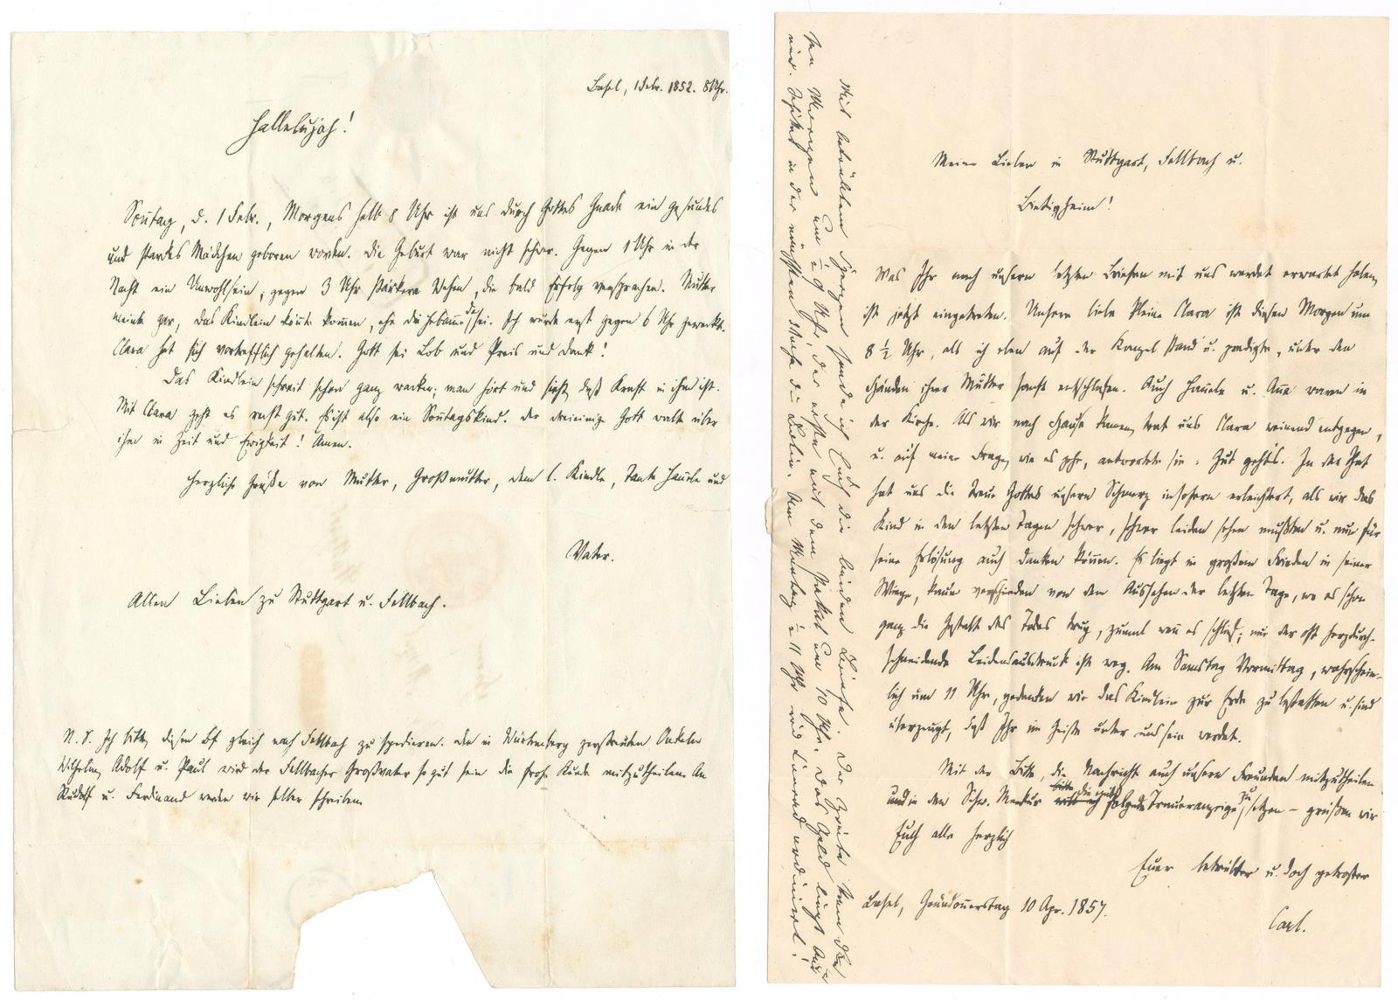 Basel, 1 Febr. 1852. 8 Uhr.
Hallelujah!
Sontag, d. 1 Febr., Morgens halb 8 Uhr ist uns durch Gottes Gnade ein gesundes
und starkes Mädchen geboren worden. Die Geburt war nicht schwer. Gegen 1 Uhr in der
Nacht ein Unwohlsein, gegen 3 Uhr stärkere Wehen, die bald Erfolg versprachen. Mutter
meinte gar, das Kindlein könnte kommen, ehe die Hebamme da sei. Ich wurde erst gegen 6 Uhr geweckt.
Clara hat sich vortrefflich gehalten. Gott sei Lob und Preis und Dank!
Das Kindlein schreit schon ganz wacker; man hört und sieht, daß Kraft in ihm ist.
Mit Clara geht es recht gut. Es ist also ein Sontagskind. Der dreieinige Gott walte über
ihm in Zeit und Ewigkeit! Amen.
Herzliche Grüße von Mutter, Großmutter, dem l. Kindle, Tante Hannele und
Vater.
Allen Lieben zu Stuttgart u. Fellbach.
N. S. Ich bitte, diesen Bf gleich nach Fellbach zu spedieren. Den in Würtemberg zerstreuten Onkeln
Wilhelm, Adolf u. Paul wird der Fellbacher Großvater so gut sein die frohe Kunde mitzutheilen. An
Rudolf u. Ferdinand werden wir selber schreiben.
Meine Lieben in Stuttgart, Fellbach u.
Bietigheim!
Was Ihr nach unsern letzten Briefen mit uns werdet erwartet haben,
ist jetzt eingetreten. Unsere liebe kleine Clara ist diesen Morgen um
8 ½ Uhr, als ich eben auf der Kanzel stand u. predigte, unter den
Händen ihrer Mutter sanft entschlafen. Auch Hannele u. Anna waren in
der Kirche. Als wir nach Hause kamen, trat uns Clara weinend entgegen,
u. auf meine Frage, wie es gehe, antwortete sie: Gut geht's. In der That
hat uns die Treue Gottes unsern Schmerz insofern erleichtert, als wir das
Kind in den letzten Tagen schwer, schwer leiden sehen mußten u. nun für
seine Erlösung auch danken können. Es liegt in großem Frieden in seiner
Wiege, kaum verschieden von dem Aussehen der letzten Tage, wo es schon
ganz die Gestalt des Todes trug, zumal wenn es schlief; nur der oft herzdurch-
schneidende Leidensausdruck ist weg. Am Samstag Vormittag, wahrschein-
lich um 11 Uhr, gedenken wir das Kindlein zur Erde zu bestatten u. sind
überzeugt, daß Ihr im Geiste unter uns sein werdet.
Mit der Bitte, die Nachricht auch unsern Freunden mitzutheilen
und in den Schw. Merkur folgende Traueranzeige zu setzen – grüßen wir
Euch alle herzlich
Euer betrübter u. doch getroster
Carl.
Basel, Gründonnerstag 10 Apr. 1857.
Mit betrübtem Herzen sende ich Euch die beiden Briefe. Der zweite kam
Morgen um 9 Uhr, der erste mit dem Paket um 10 Uhr. Das Geld liegt
in der nächsten Woche die Am Montag 11 Uhr wird